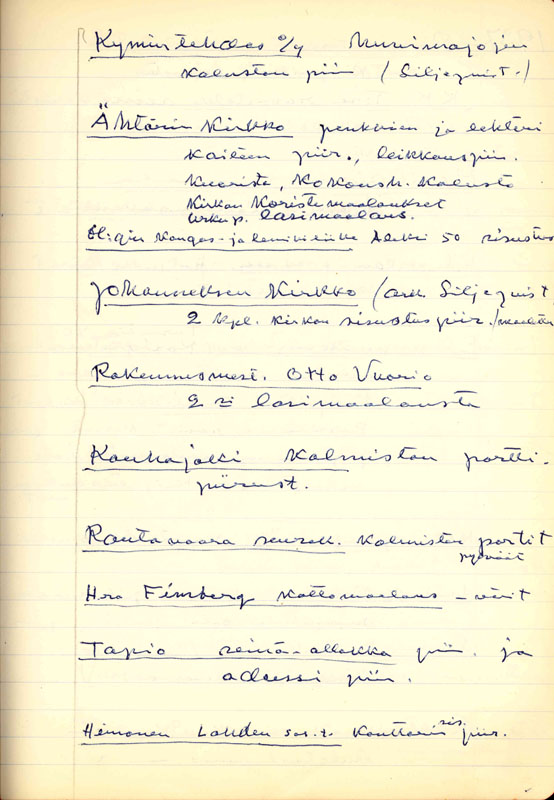 Kymintehdas o/y
kaluston piir (Siljeqvist.)
Ähtärin Kirkko penkkien ja lehteri
kaiteen piir., leikkauspiir.
Kuorista, Kokoush. Kalusto
Kirkon Koristemaalaukset
Urkup. lasimaalaus.
Kangas- ja Aleksi 50 sisustus
Johanneksen Kirkko (ark. Siljeqvist
2 kpl. kirkon sisustus piir./
Rakennusmest. Otto Vuorio
2 lasimaalausta
Kauhajoki Kalmiston portti-
piirust.
Rautavaara seurak. Kalmiston portit
pylväät
Hra Fimberg Kattomaalaus - värit
Tapio seinä-allakka piir. ja
adressi piir.
Heinonen Lahden konttorin sis. piir.